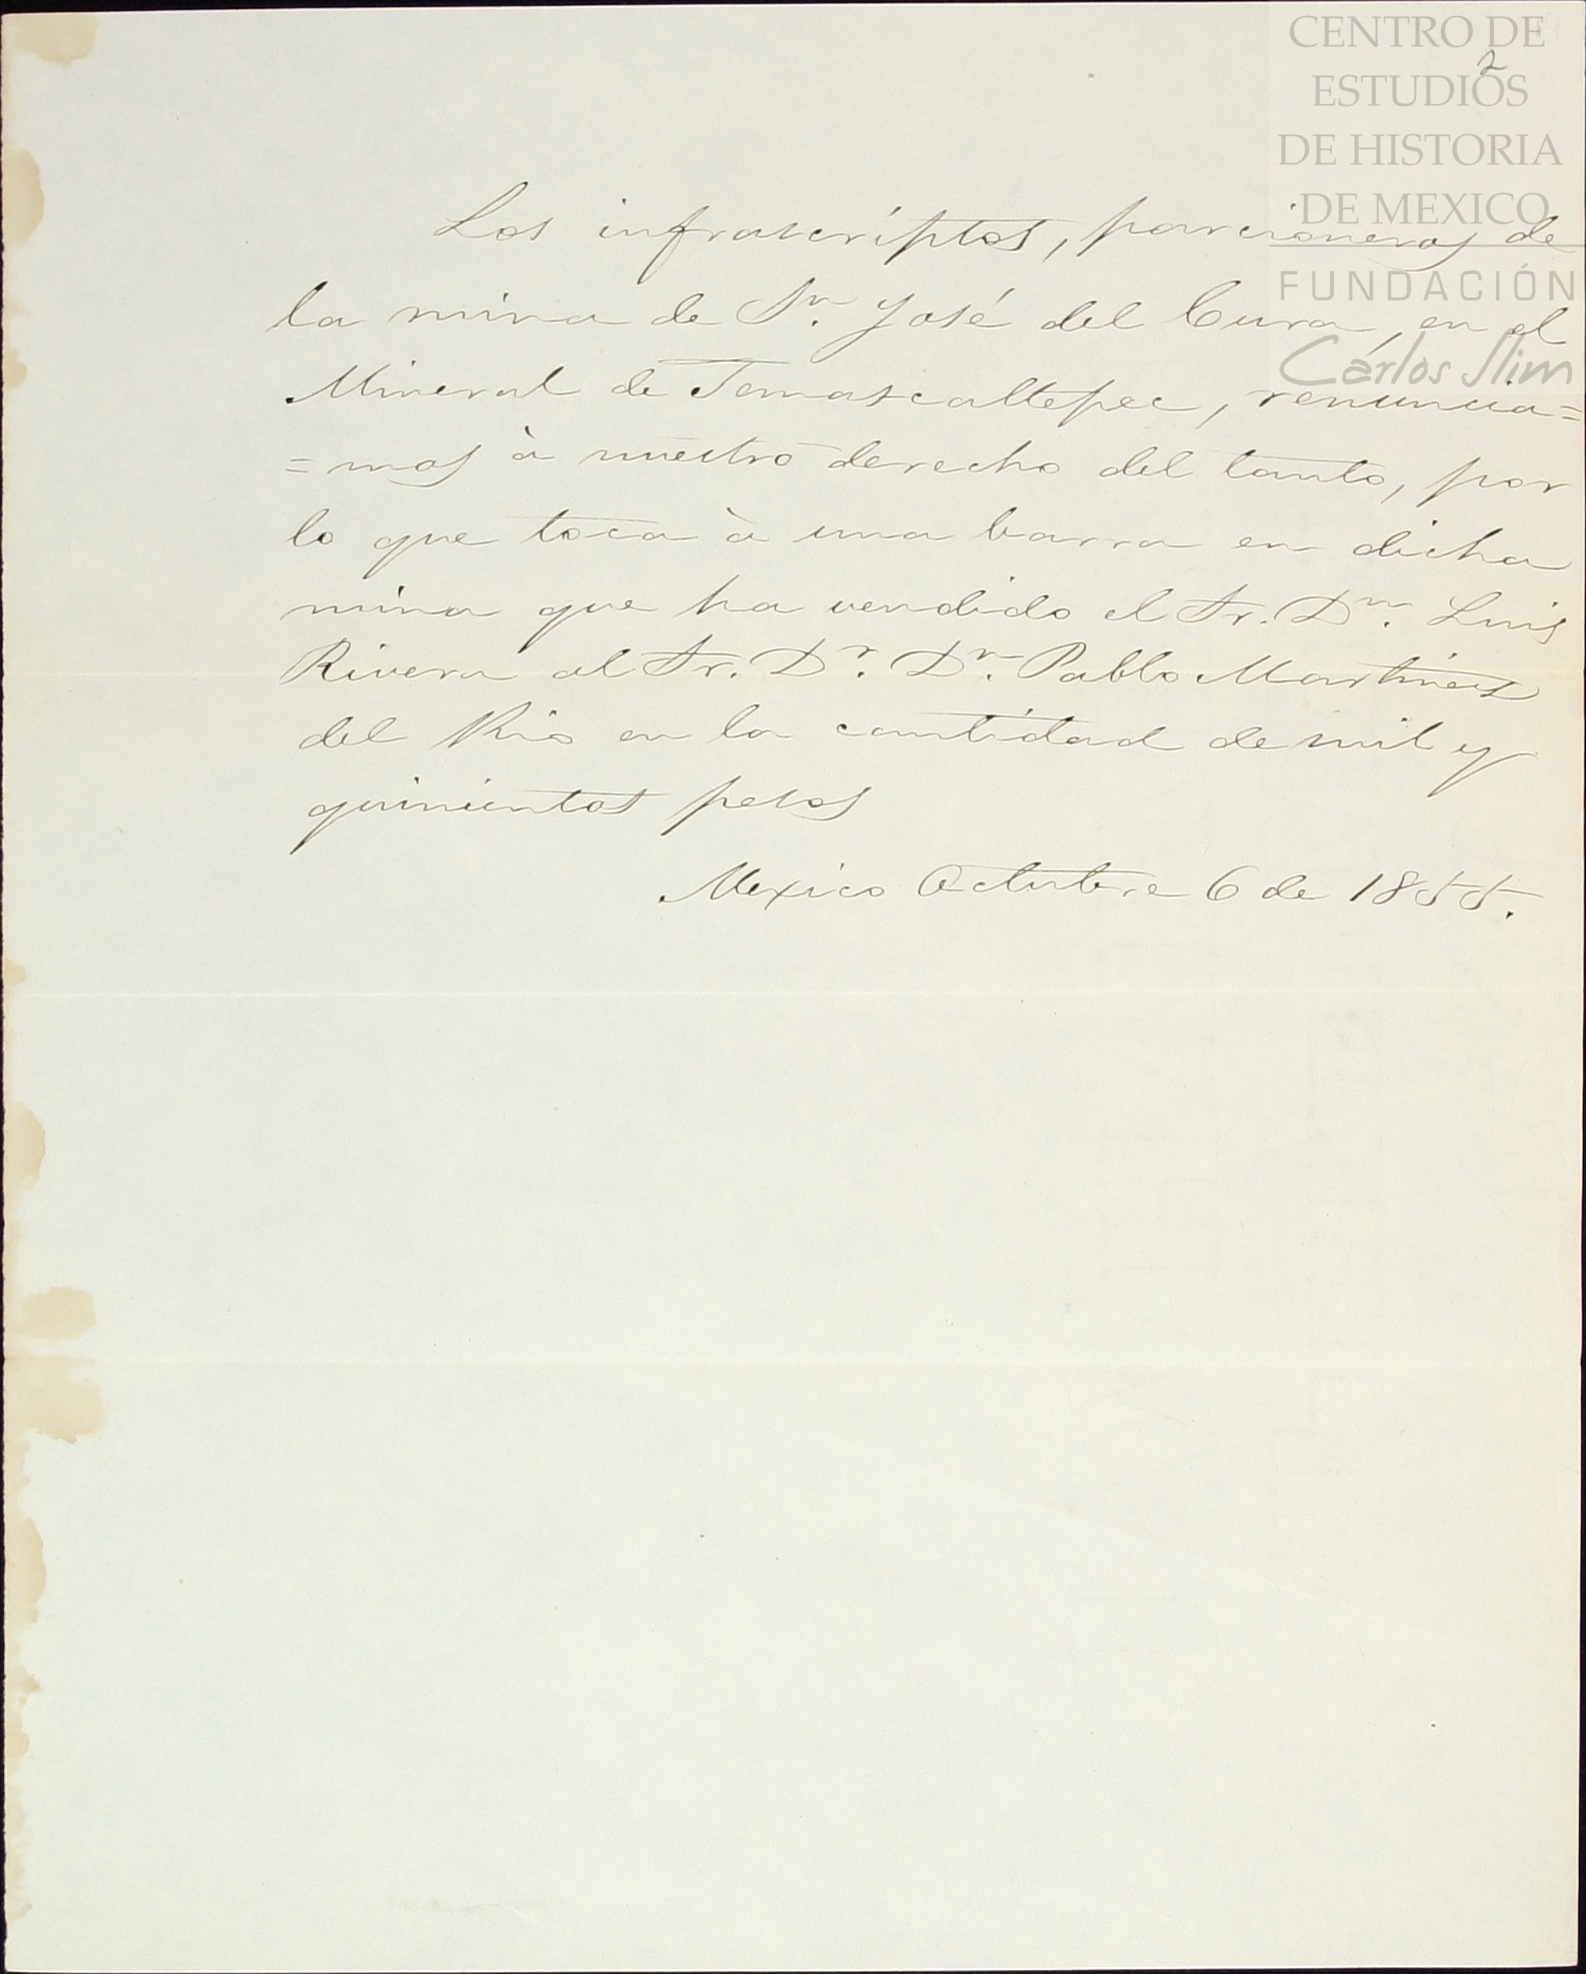 CENTRO DE
ESTUDIOS
DE HISTORIA
DE MEXICO
FUNDACIÓN
Carlos Slim
2
Los infrascriptos, parcioneros de
la mina de Sn. José del Cura, en el
Mineral de Temascaltepec, renuncia=
=mos à nuestro derecho del tanto, por
lo que toca à una barra en dicha
mina que ha vendido el Sr. Dn. Luis
Rivera al Sr. Dr. Dn. Pablo Martinez
del Rio en la cantidad de mil y
quinientos pesos
Mexico Octubre 6 de 1855.